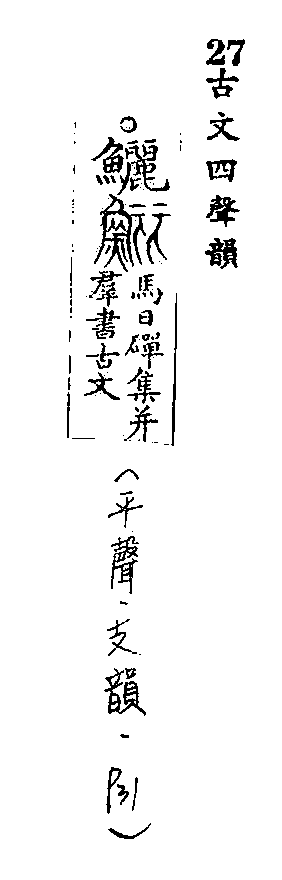 27古文四聲韻
○鱺
馬日磾集并
羣書古文
(平聲、支韻、